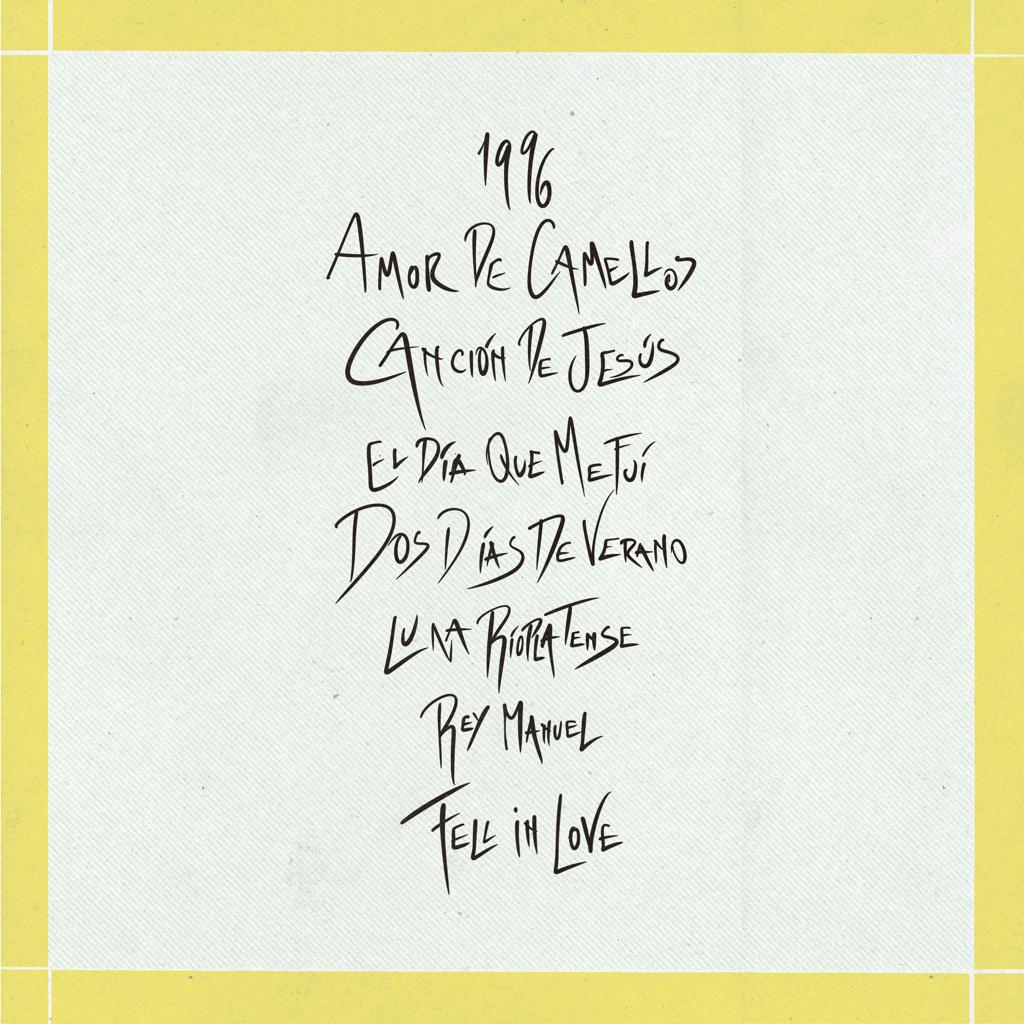 1996
Amor De Camellos
Canción De Jesús
El Día Que Me Fuí
Dos Días De Verano
Luna Ríoplatense
Rey Manuel
Fell in Love